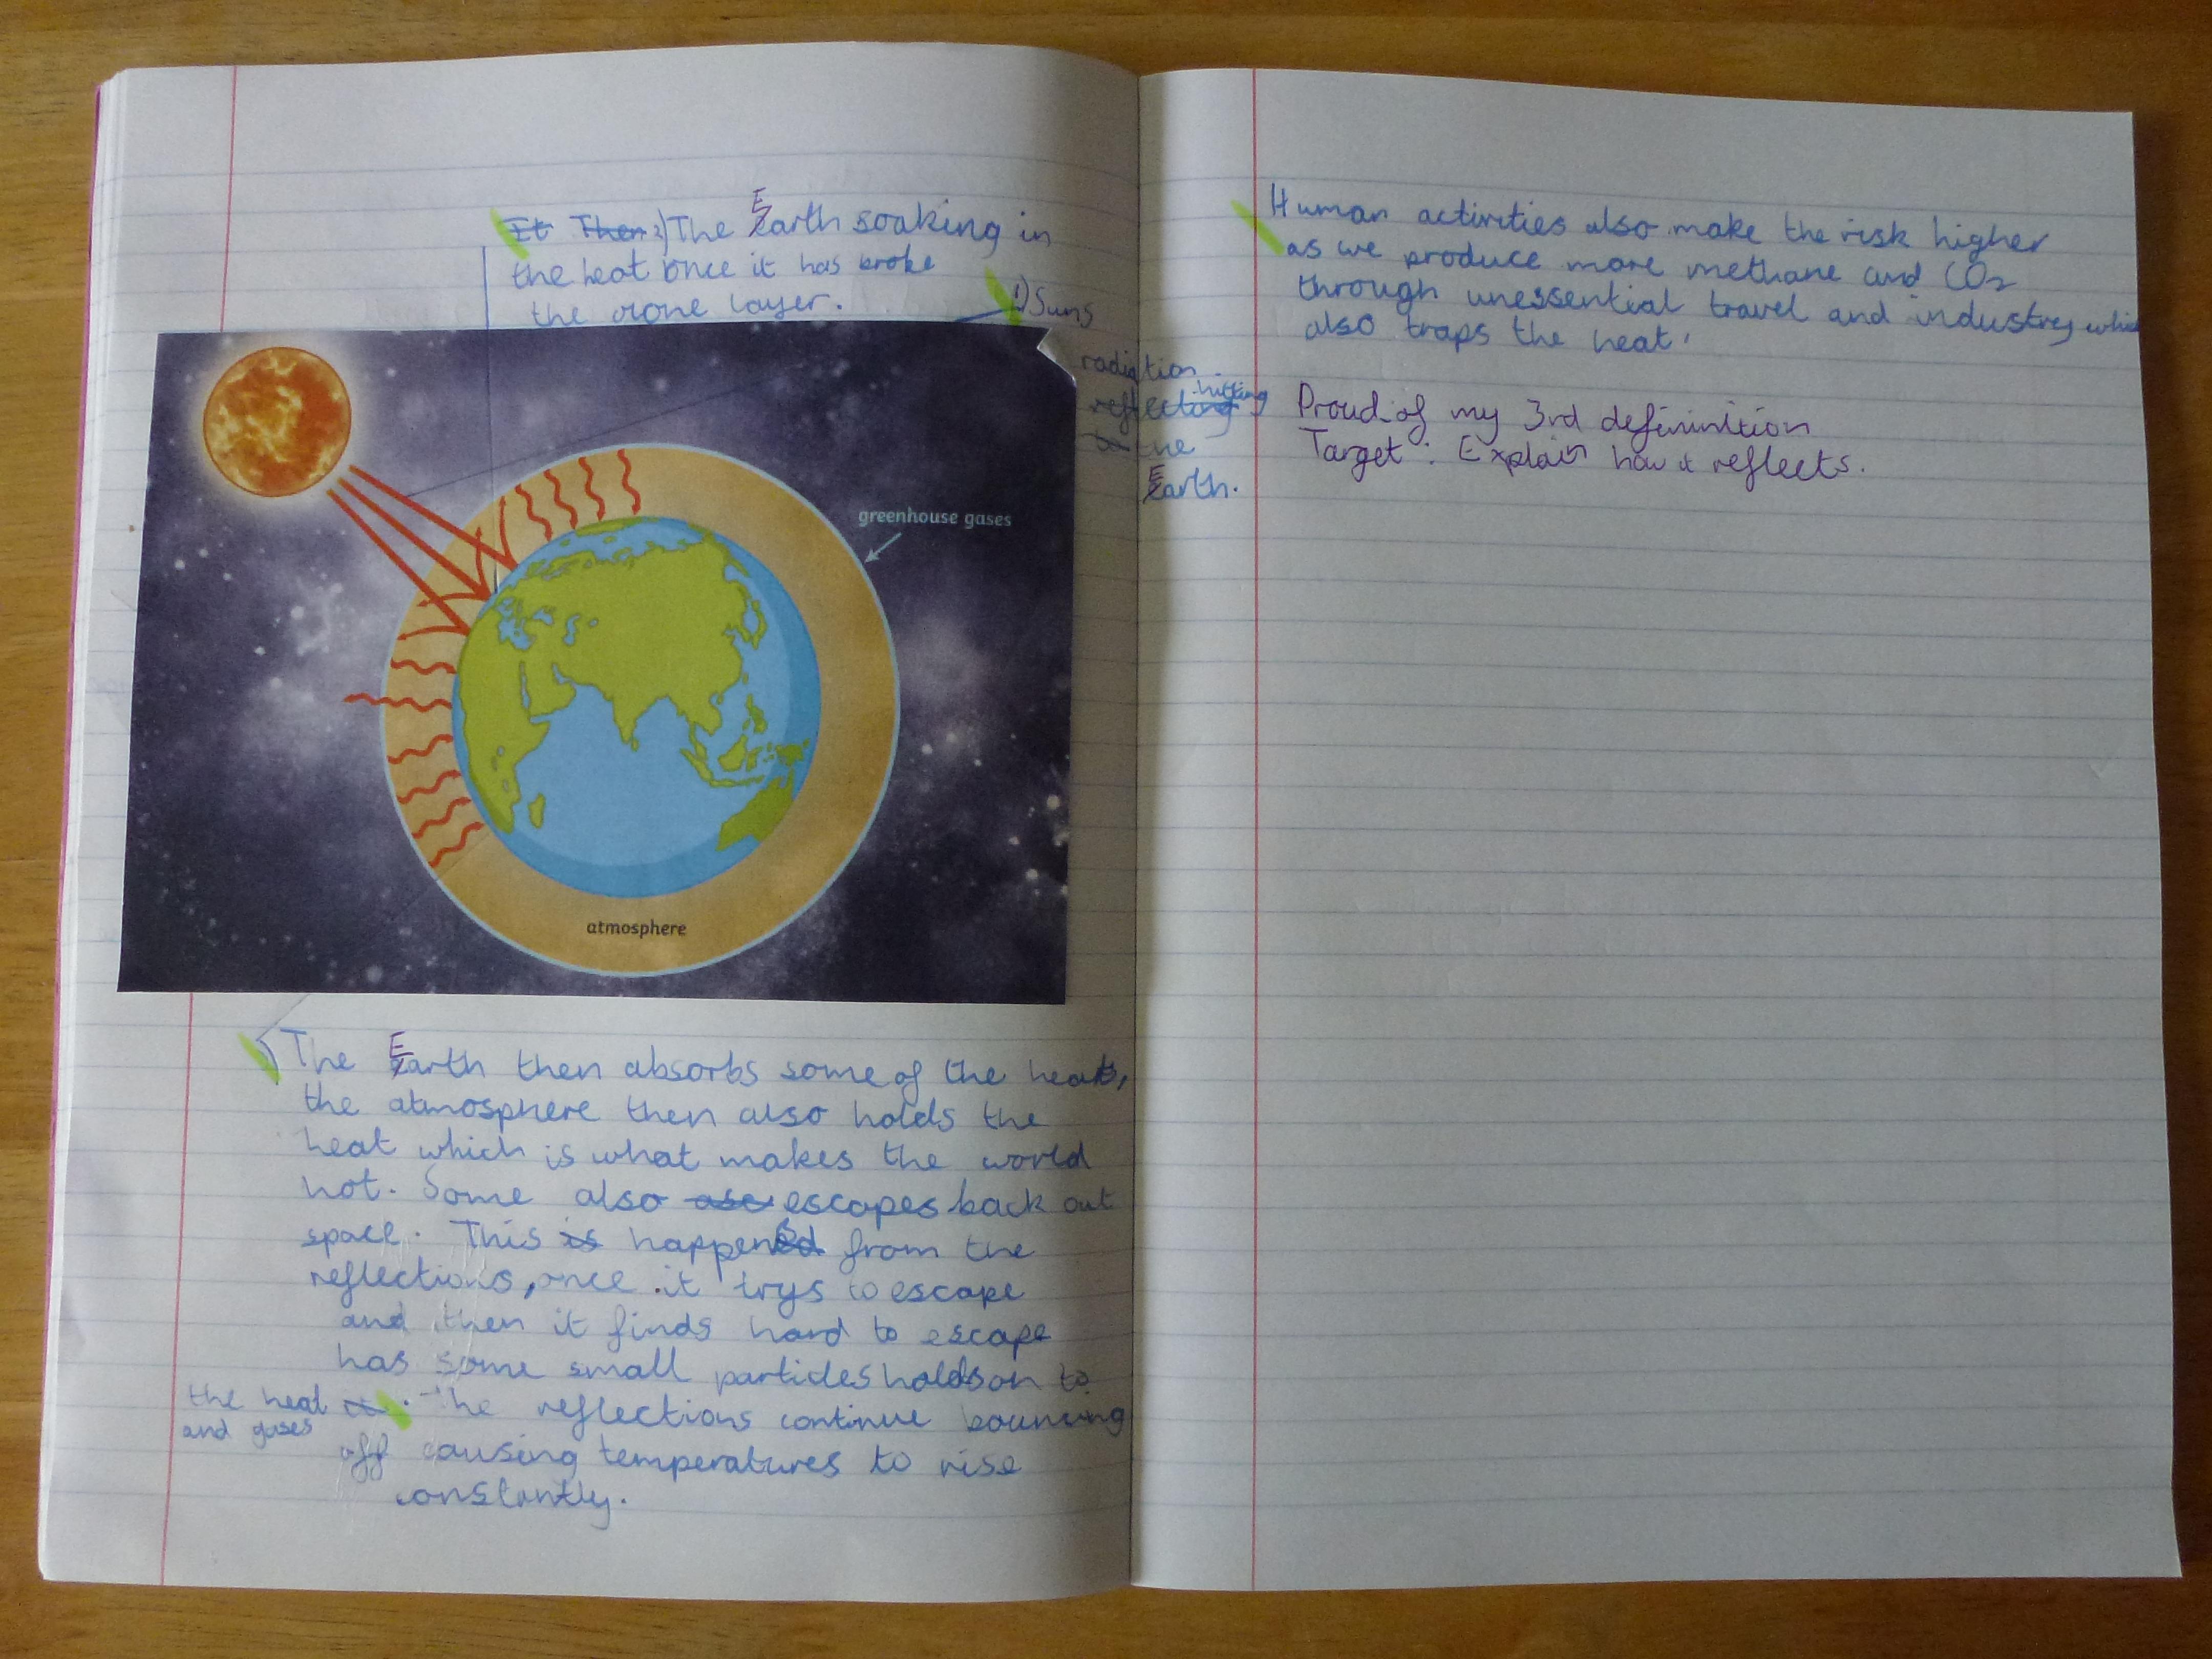 It Then 2) The Earth soaking in
the heat once it has broke
the ozone layer.
1) Suns
radiation
reflecting hitting
to the
Earth.
greenhouse gases
atmosphere
) The Earth then absorbs some of the heat,
the atmosphere then also holds the
heat which is what makes the world
hot. Some also escapes back out
space. This is happens from the
reflections, once it trys to escape
and then it finds hard to escape
has some small particles holds on to
the heat . The reflections continue bouncing
and gases
off causing temperatures to rise
constantly.
Human activities also make the risk higher
as we produce more methane and CO2
through unessential travel and industrey whic
also traps the heat.
Proud of my 3rd defininition
Target : Explain how it reflects.